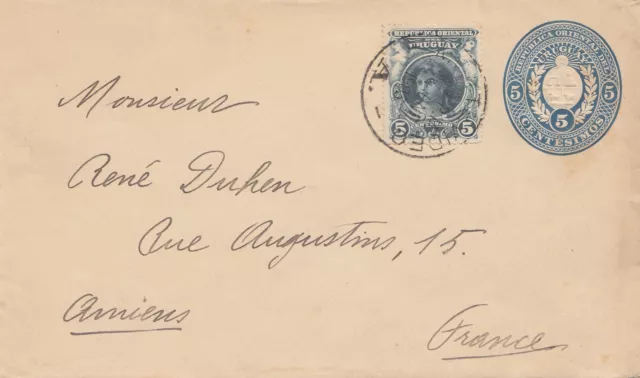 REPUBLICA ORIENTAL
DEL
URUGUAY
5 5
REPUBLICA ORIENTAL DEL
URUGUAY
5 5
5
CENTÉSIMOS
Monsieur
René Duhen
Rue Augustins, 15.
Amiens
France